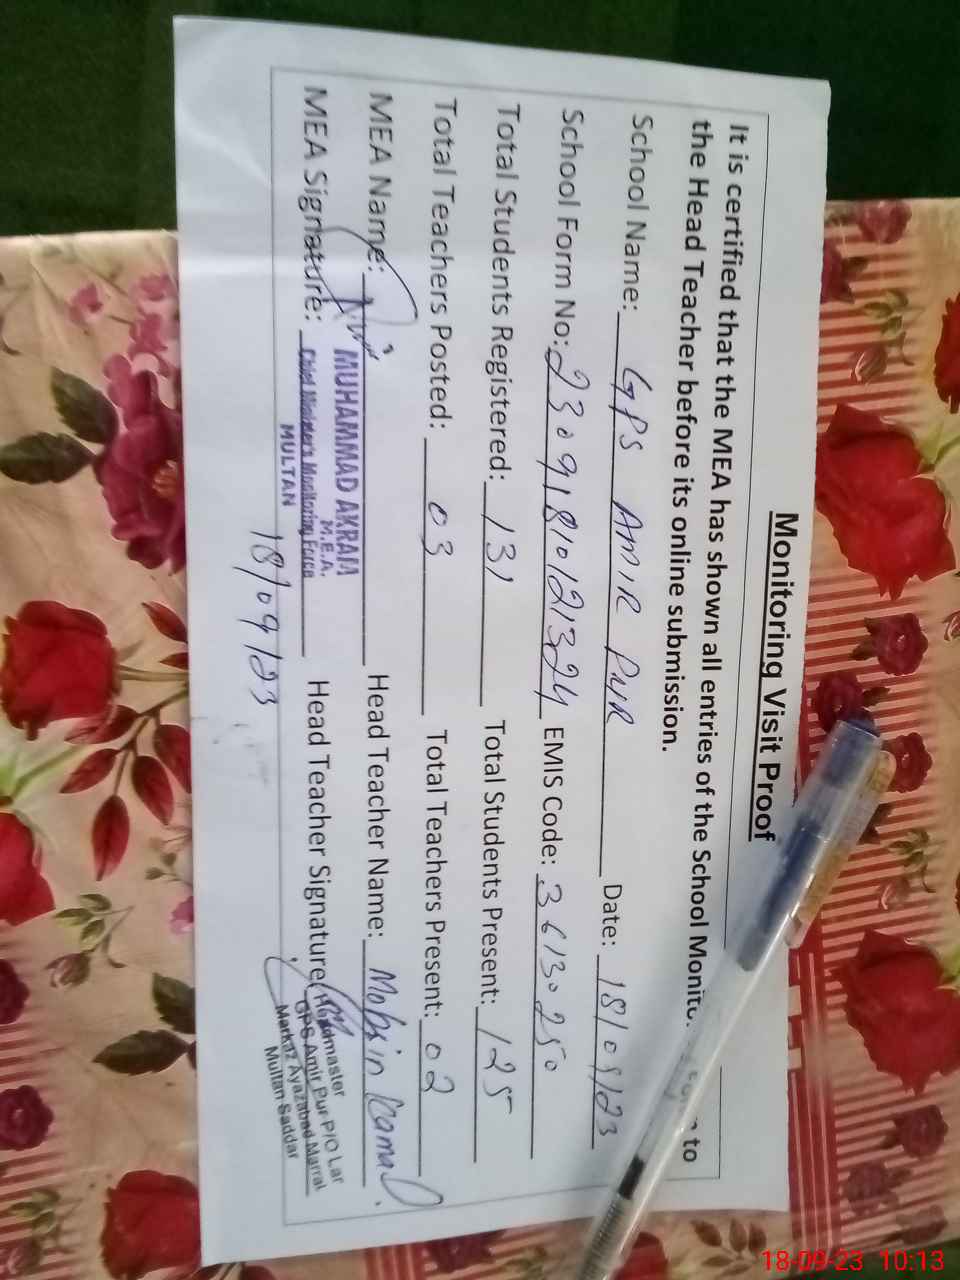 Monitoring Visit Proof
It is certified that the MEA has shown all entries of the School Monito to
the Head Teacher before its online submission.
School Name: GPS AMIR PUR Date: 18/09/23
School Form No: 23091810121324 EMIS Code: 36130250
Total Students Registered: 131 Total Students Present: 125
Total Teachers Posted: 03 Total Teachers Present: 02
MEA Name: Head Teacher Name: Mohsin Kamal
MUHAMMAD AKRAM
M.E.A.
MEA Signature: Chief Minister's Monitoring Force Head Teacher Signature
MULTAN
Headmaster
GPS Amir Pur P/O Lar
Markaz Ayazabad Marral
Multan Saddar
18/09/23
18-09-23 10:13